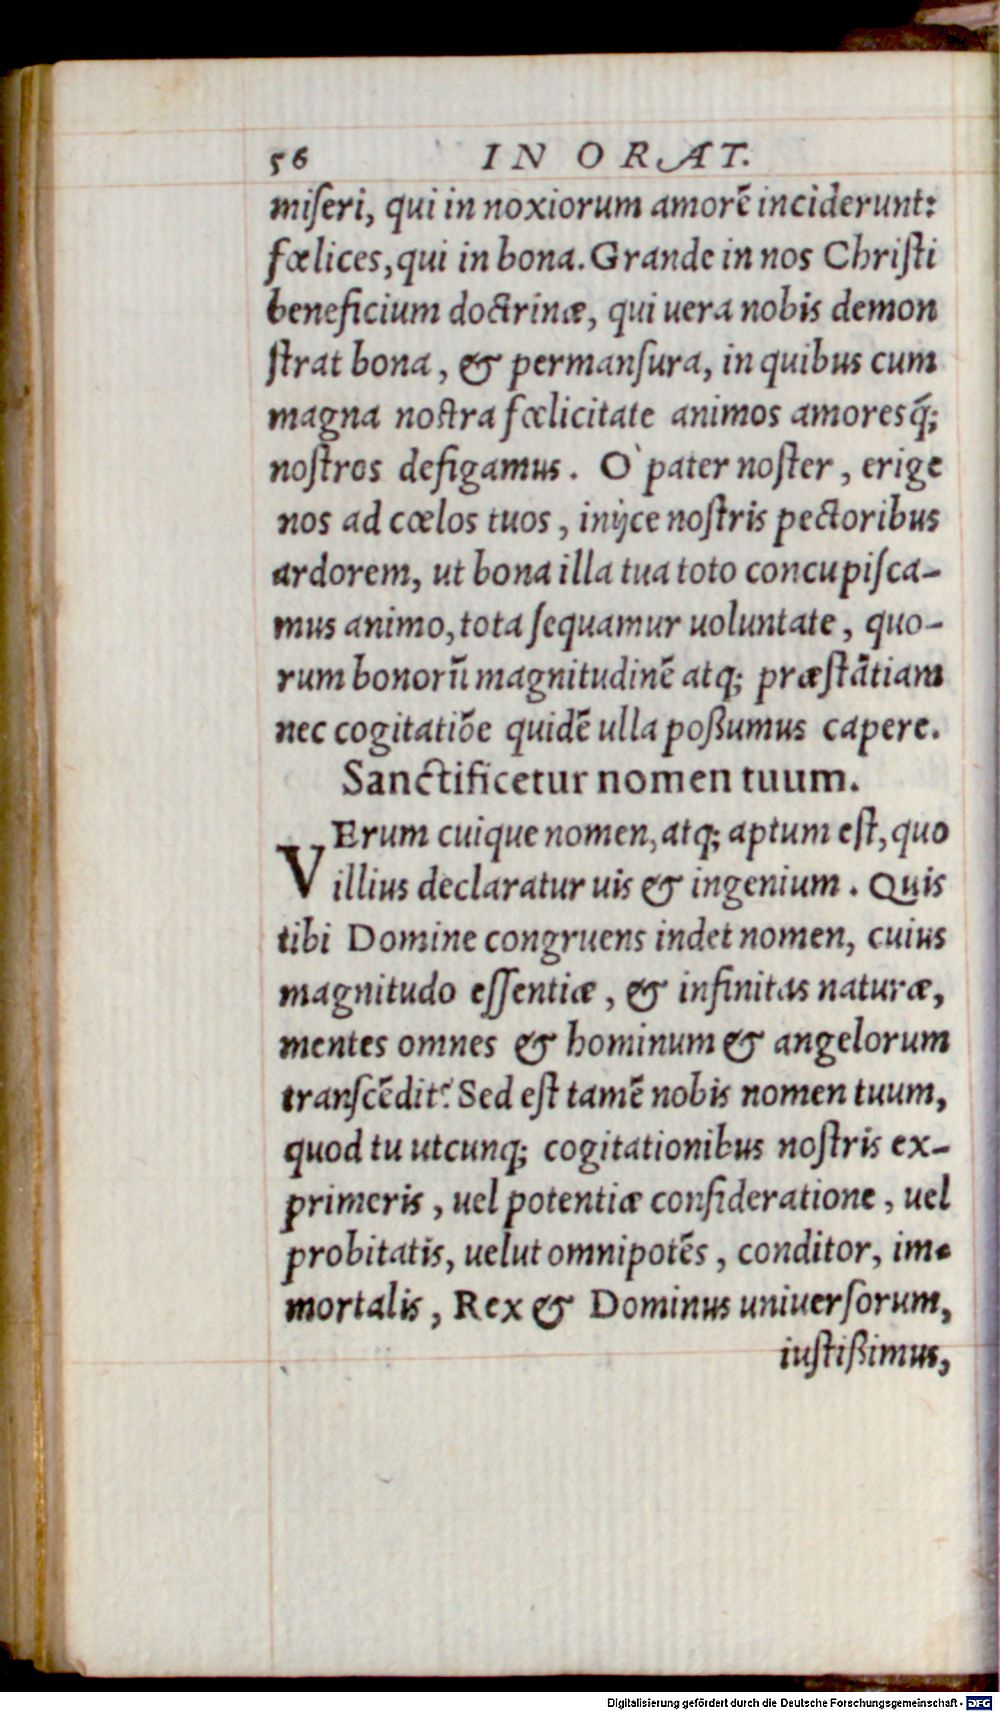 56 IN ORAT.
miſeri, qui in noxiorum amorẽ inciderunt:
fœlices, qui in bona. Grande in nos Chriſti
beneficium doctrinæ, qui uera nobis demon
ſtrat bona, & permanſura, in quibus cum
magna noſtra fœlicitate animos amoresq́;
noſtros defigamus. O` pater noſter, erige
nos ad cœlos tuos, inijce noſtris pectoribus
ardorem, ut bona illa tua toto concupiſca-
mus animo, tota ſequamur uoluntate, quo-
rum bonorũ magnitudinẽ atq; præſtãtiam
nec cogitatiõe quidẽ ulla poßumus capere.
Sanctificetur nomen tuum.
VErum cuique nomen, atq; aptum eſt, quo
illius declaratur uis & ingenium. Quis
tibi Domine congruens indet nomen, cuius
magnitudo eſſentiæ, & infinitas naturæ,
mentes omnes & hominum & angelorum
tranſcẽdit? Sed eſt tamẽ nobis nomen tuum,
quod tu utcunq; cogitationibus noſtris ex-
primeris, uel potentiæ conſideratione, uel
probitatis, uelut omnipotẽs, conditor, im-
mortalis, Rex & Dominus uniuerſorum,
iuſtißimus,
Digitalisierung gefördert durch die Deutsche Forschungsgemeinschaft - DFG